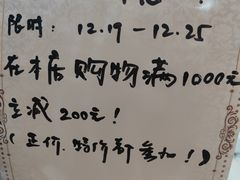 限时: 12.19-12.25
在本店购物满1000元
立减200元!
(正价.特价都参加!)